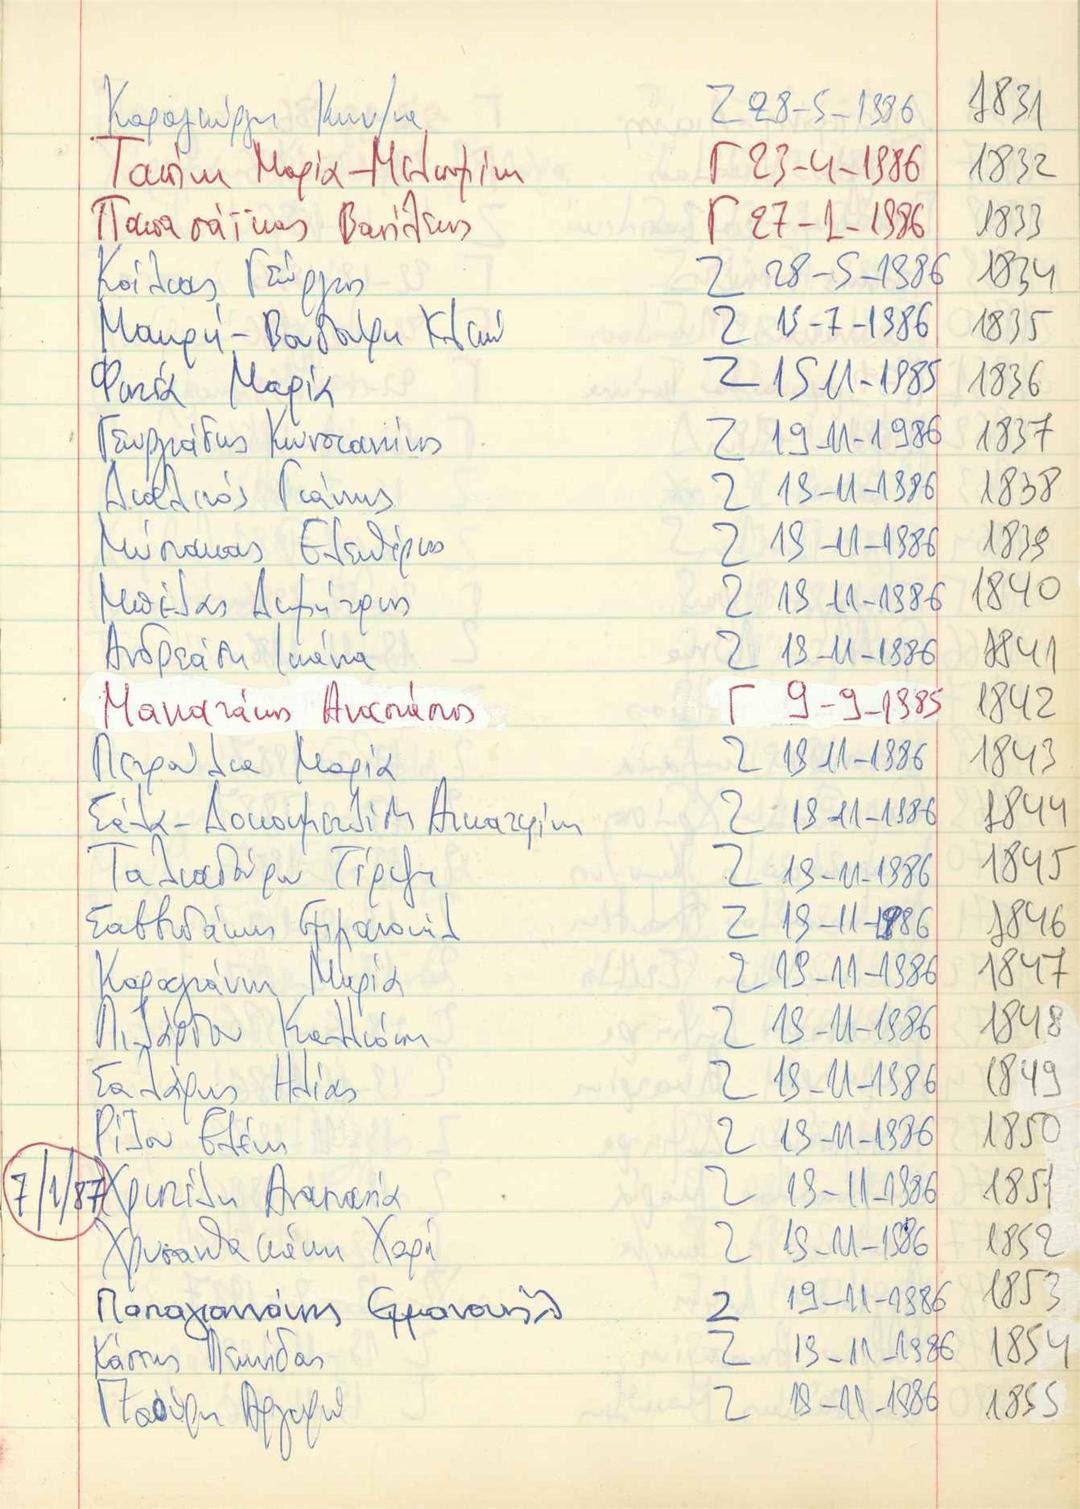 Καραγιώργη Κων/να Ζ 28-5-1986 1831
Τασίνη Μαρία - Γ 23-4-1986 1832
Παπασάϊκας Βασίλειος Γ 27-1-1986 1833
Κοίλιας Γεώργιος Ζ 28-5-1986 1834
Μακρή - Βουδούρη Ζ 15-7-1986 1835
Φωτιά Μαρία Ζ 15 11-1985 1836
Γεωργιάδης Κωνσταντίνος Ζ 19 11-1986 1837
Γιάννης Ζ 19-11-1986 1838
Ελευθέριος Ζ 19-11-1986 1839
Μπέλας Δημήτριος Ζ 19 11-1986 1840
Ανδρεάδη Ιωάννα Ζ 19-11-1986 1841
Μανατάκης Αναστάσιος Γ 9-9-1985 1842
Πετρούλια Μαρία Ζ 19 11-1986 1843
Σάλα - Αικατερίνη Ζ 19-11-1986 1844
Ταλιαδούρου Ζ 19-11-1986 1845
Σαββιδάκης Εμμανουήλ Ζ 19-11-1986 1846
Καραγιάννη Μαρία Ζ 19-11-1986 1847
Καλλιόπη Ζ 19-11-1986 1848
Σαλάρης Ηλίας Ζ 19-11-1986 1849
Ρίζου Ελένη Ζ 19-11-1986 1850
7/1/87 Χρηστίδη Αναστασία Ζ 19-11-1986 1851
Χρυσανθακάκη Χαρή Ζ 19-11-1986 1852
Παπαγιαννάκης Εμμανουήλ Ζ 19-11-1986 1853
Κάσσης Λεωνίδας Ζ 19-11-1986 1854
Αργυρώ Ζ 19-11-1986 1855